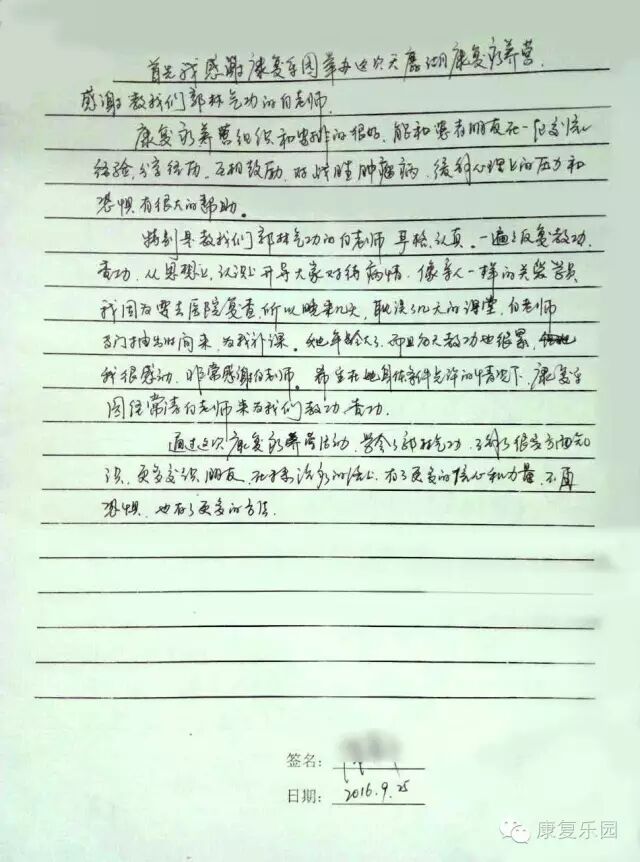 首先我感谢康复乐园举办这次天鹿湖康复疗养营,
感谢教我们郭林气功的白老师.
康复疗养营组织和安排的很好, 能和患者朋友在一起交流
经验, 分享经历, 互相鼓励, 对战胜肿瘤病, 缓解心理上的压力和
恐惧有很大的帮助。
特别是教我们郭林气功的白老师 严格, 认真. 一遍又一遍反复教功,
查功, 从思想上, 认识上开导大家对待病情, 像亲人一样的关爱学员
我因为要去医院复查, 所以晚来几天, 耽误了几天的课堂, 白老师
专门抽出时间来, 为我补课. 她年龄大了, 而且每天教功也很累,
我很感动, 非常感谢白老师. 希望在她身体条件允许的情况下, 康复乐
园经常请白老师来为我们教功 查功.
通过这次康复疗养营活动, 学会了郭林气功, 了解了很多方面知
识, 更多交识朋友, 在未来的路上, 有了更多的信心和力量, 不再
恐惧, 也有了更多的方法.
签名:
日期: 2016.9.25
康复乐园